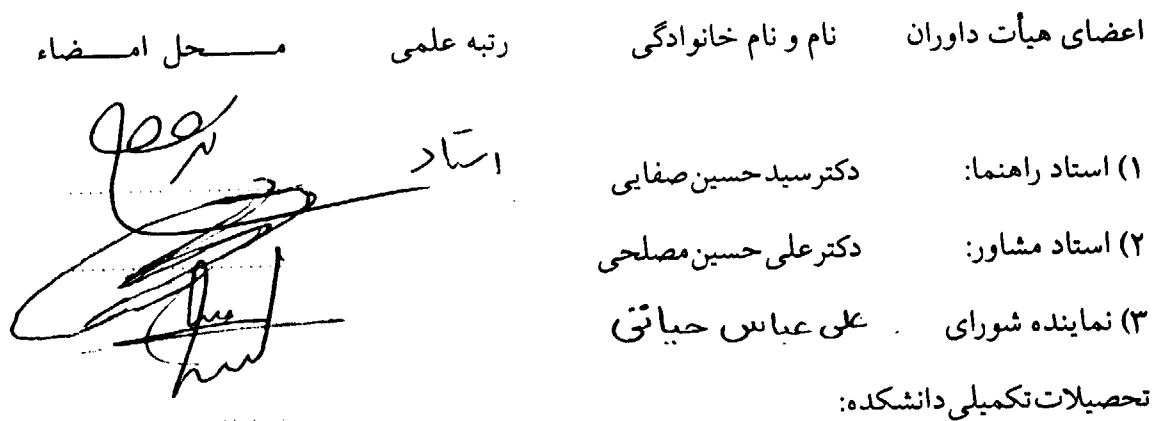 اعضای هیأت داوران نام و نام خانوادگی رتبه علمی مـــحل امـــضاء
۱) استاد راهنما: دکتر سید حسین صفایی استاد
۲) استاد مشاور: دکتر علی حسین مصلحی
۳) نماینده شورای علی عباس حیاتی
تحصیلات تکمیلی دانشکده: